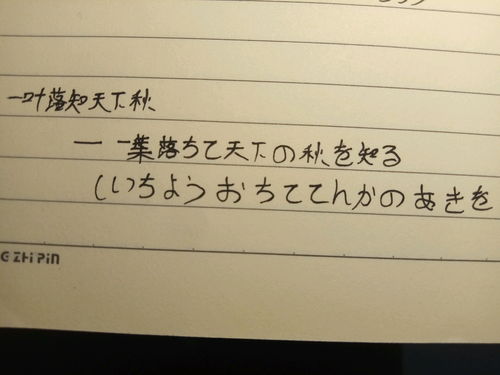 一叶落知天下秋
一 一葉落ちて天下の秋を知る
(いちようおちててんかのあきを
ZHi PiN